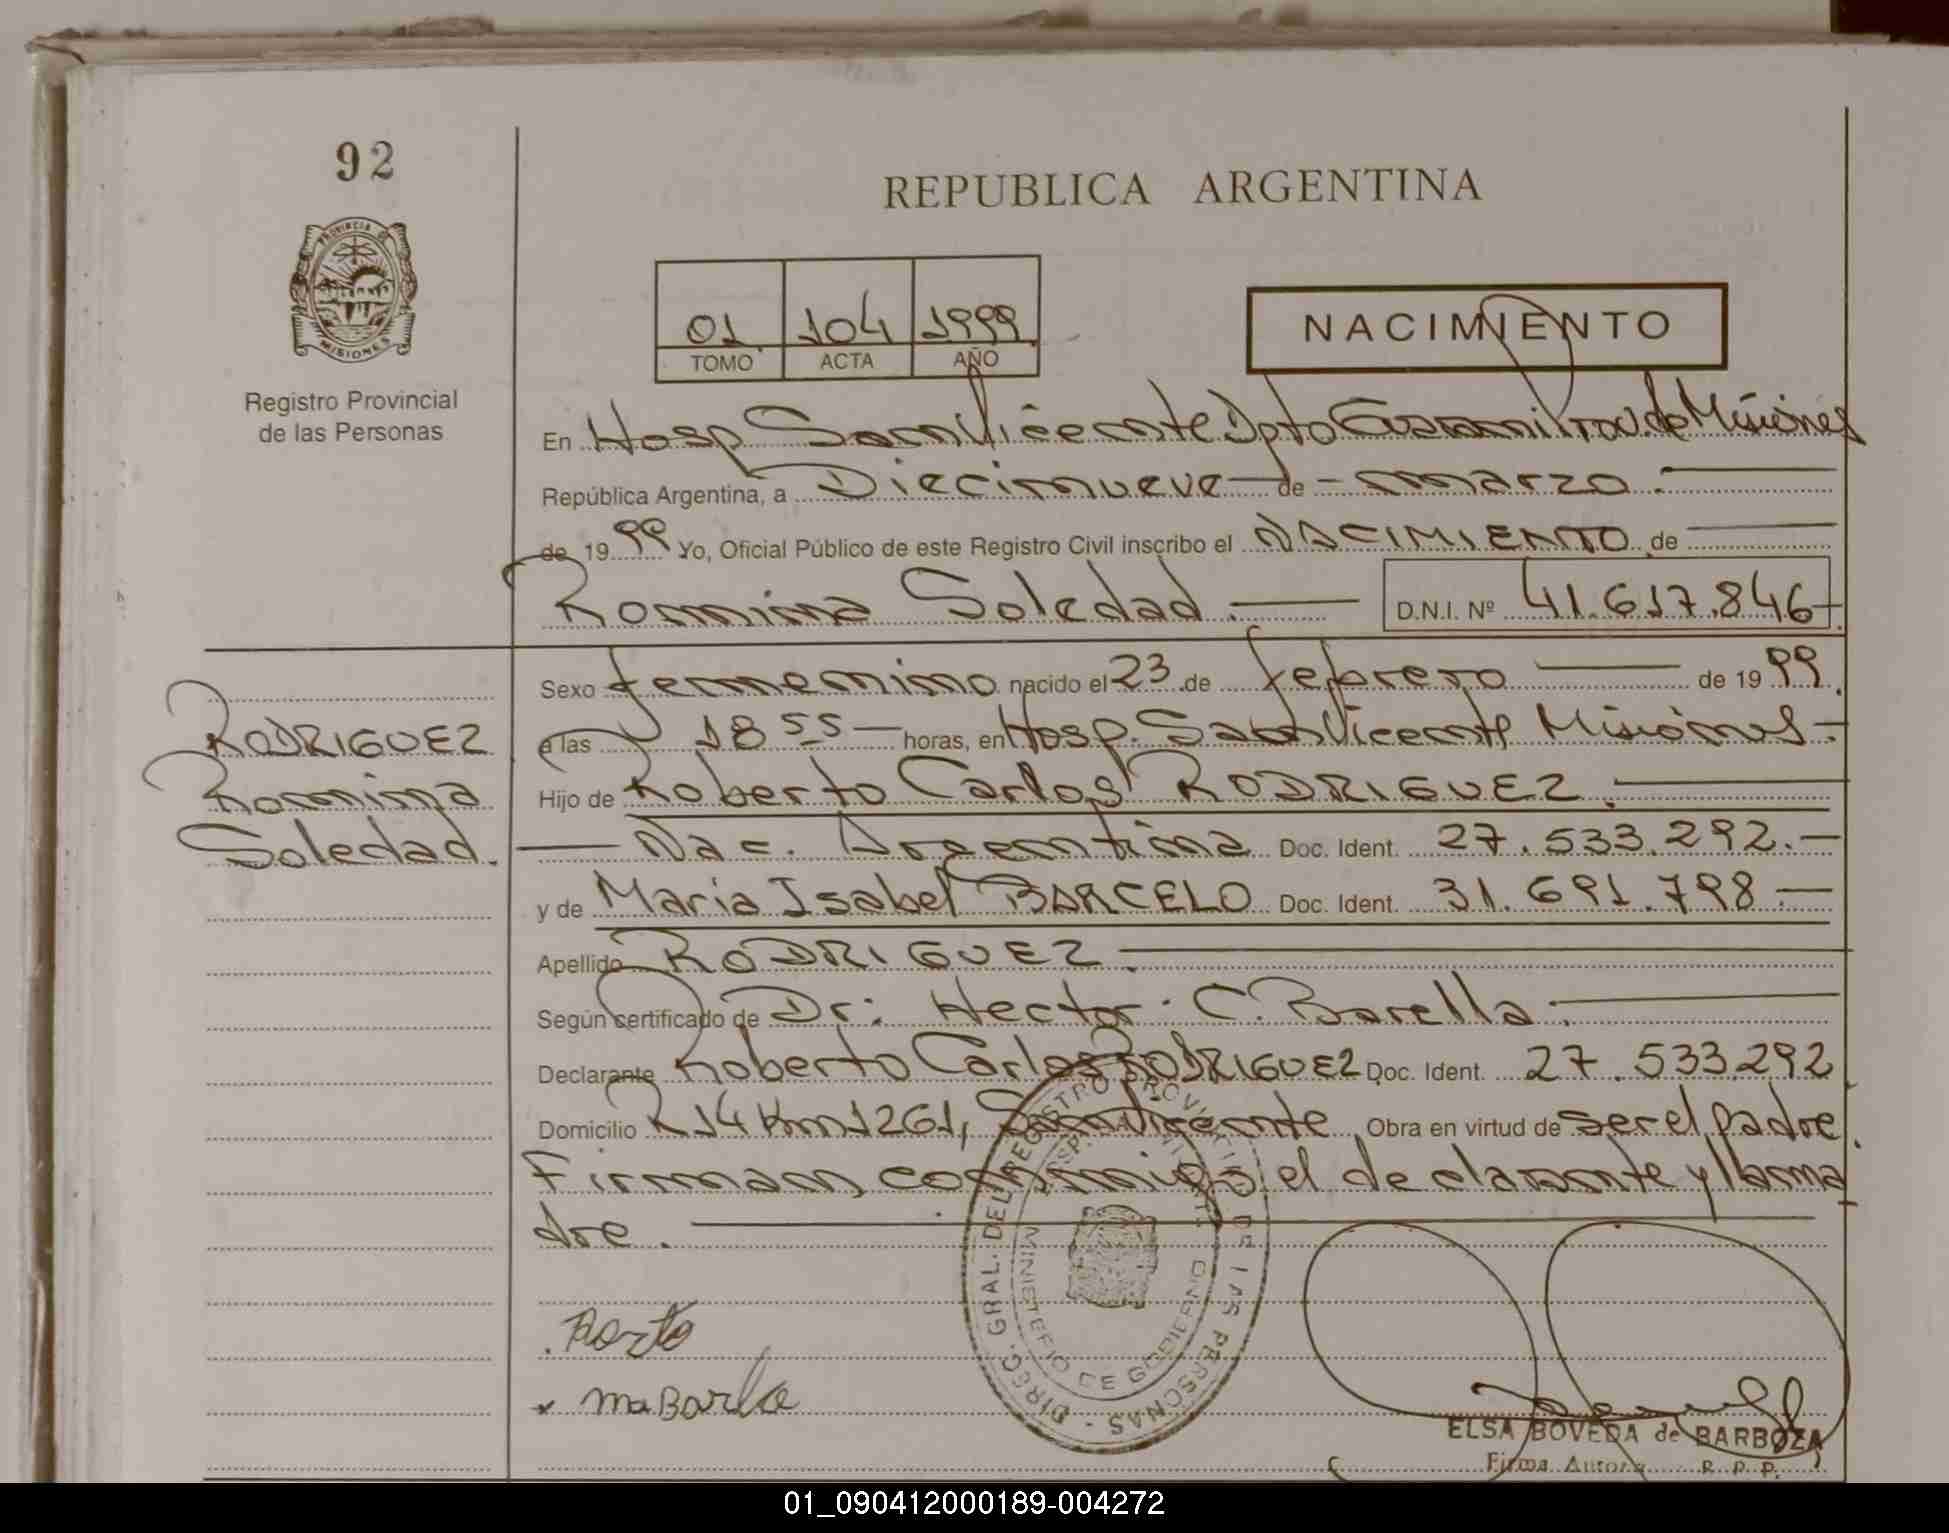 92
REPUBLICA ARGENTINA
PROVINCIA DE
MISIONES
Registro Provincial
de las Personas
01 104 1999
TOMO ACTA AÑO
NACIMIENTO
En Hosp San Vicente Dpto Guarani Prov. de Misiones
República Argentina, a Diecinueve de marzo.
de 1999 Yo, Oficial Público de este Registro Civil inscribo el NACIMIENTO de
Romina Soledad. D.N.I. Nº 41.617.846
Sexo femenino nacido el 23 de febrero de 1999
a las 18 55 horas, en Hosp. San Vicente Misiones
Hijo de Roberto Carlos RODRIGUEZ.
Nac. Argentina Doc. Ident. 27.533.292.
y de Maria Isabel BARCELO Doc. Ident. 31.691.798
Apellido RODRIGUEZ.
Según certificado de Dr: Hector C. Barella.
Declarante Roberto Carlos RODRIGUEZ Doc. Ident. 27.533.292
Domicilio R 14 Km 1261, San Vicente Obra en virtud de ser el padre.
Firman conmigo el declarante y la ma
dre.
RODRIGUEZ
Romina
Soledad.
DIREC. GRAL. DEL REGISTRO PROVINCIAL DE LAS PERSONAS
MINISTERIO DE GOBIERNO
ma Barlo
ELSA BOVEDA de BARBOZA
Firma Autoriz. R. P. P.
01_090412000189-004272